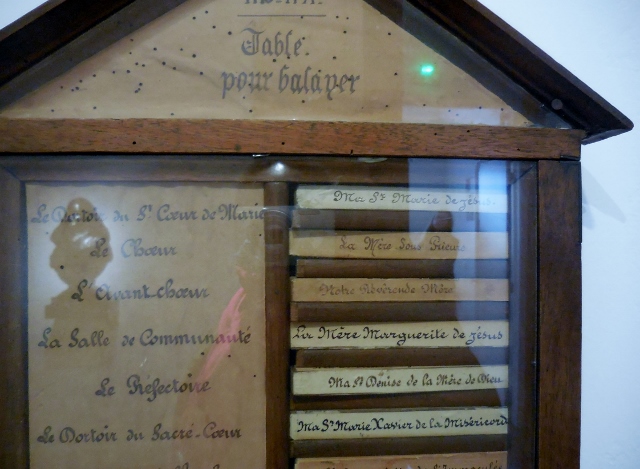 Table
pour balayer
Le Dortoir du St Cœur de Marie
Ma Sr Marie de Jésus.
Le Chœur
La Mère Sous Prieure
L'Avant chœur
Notre Révérende Mère
La Salle de Communauté
La Mère Marguerite de Jésus
Le Réfectoire
Ma Sr Denise de la Mère de Dieu
Le Dortoir du Sacré-Cœur
Ma Sr Marie Xavier de la Miséricord